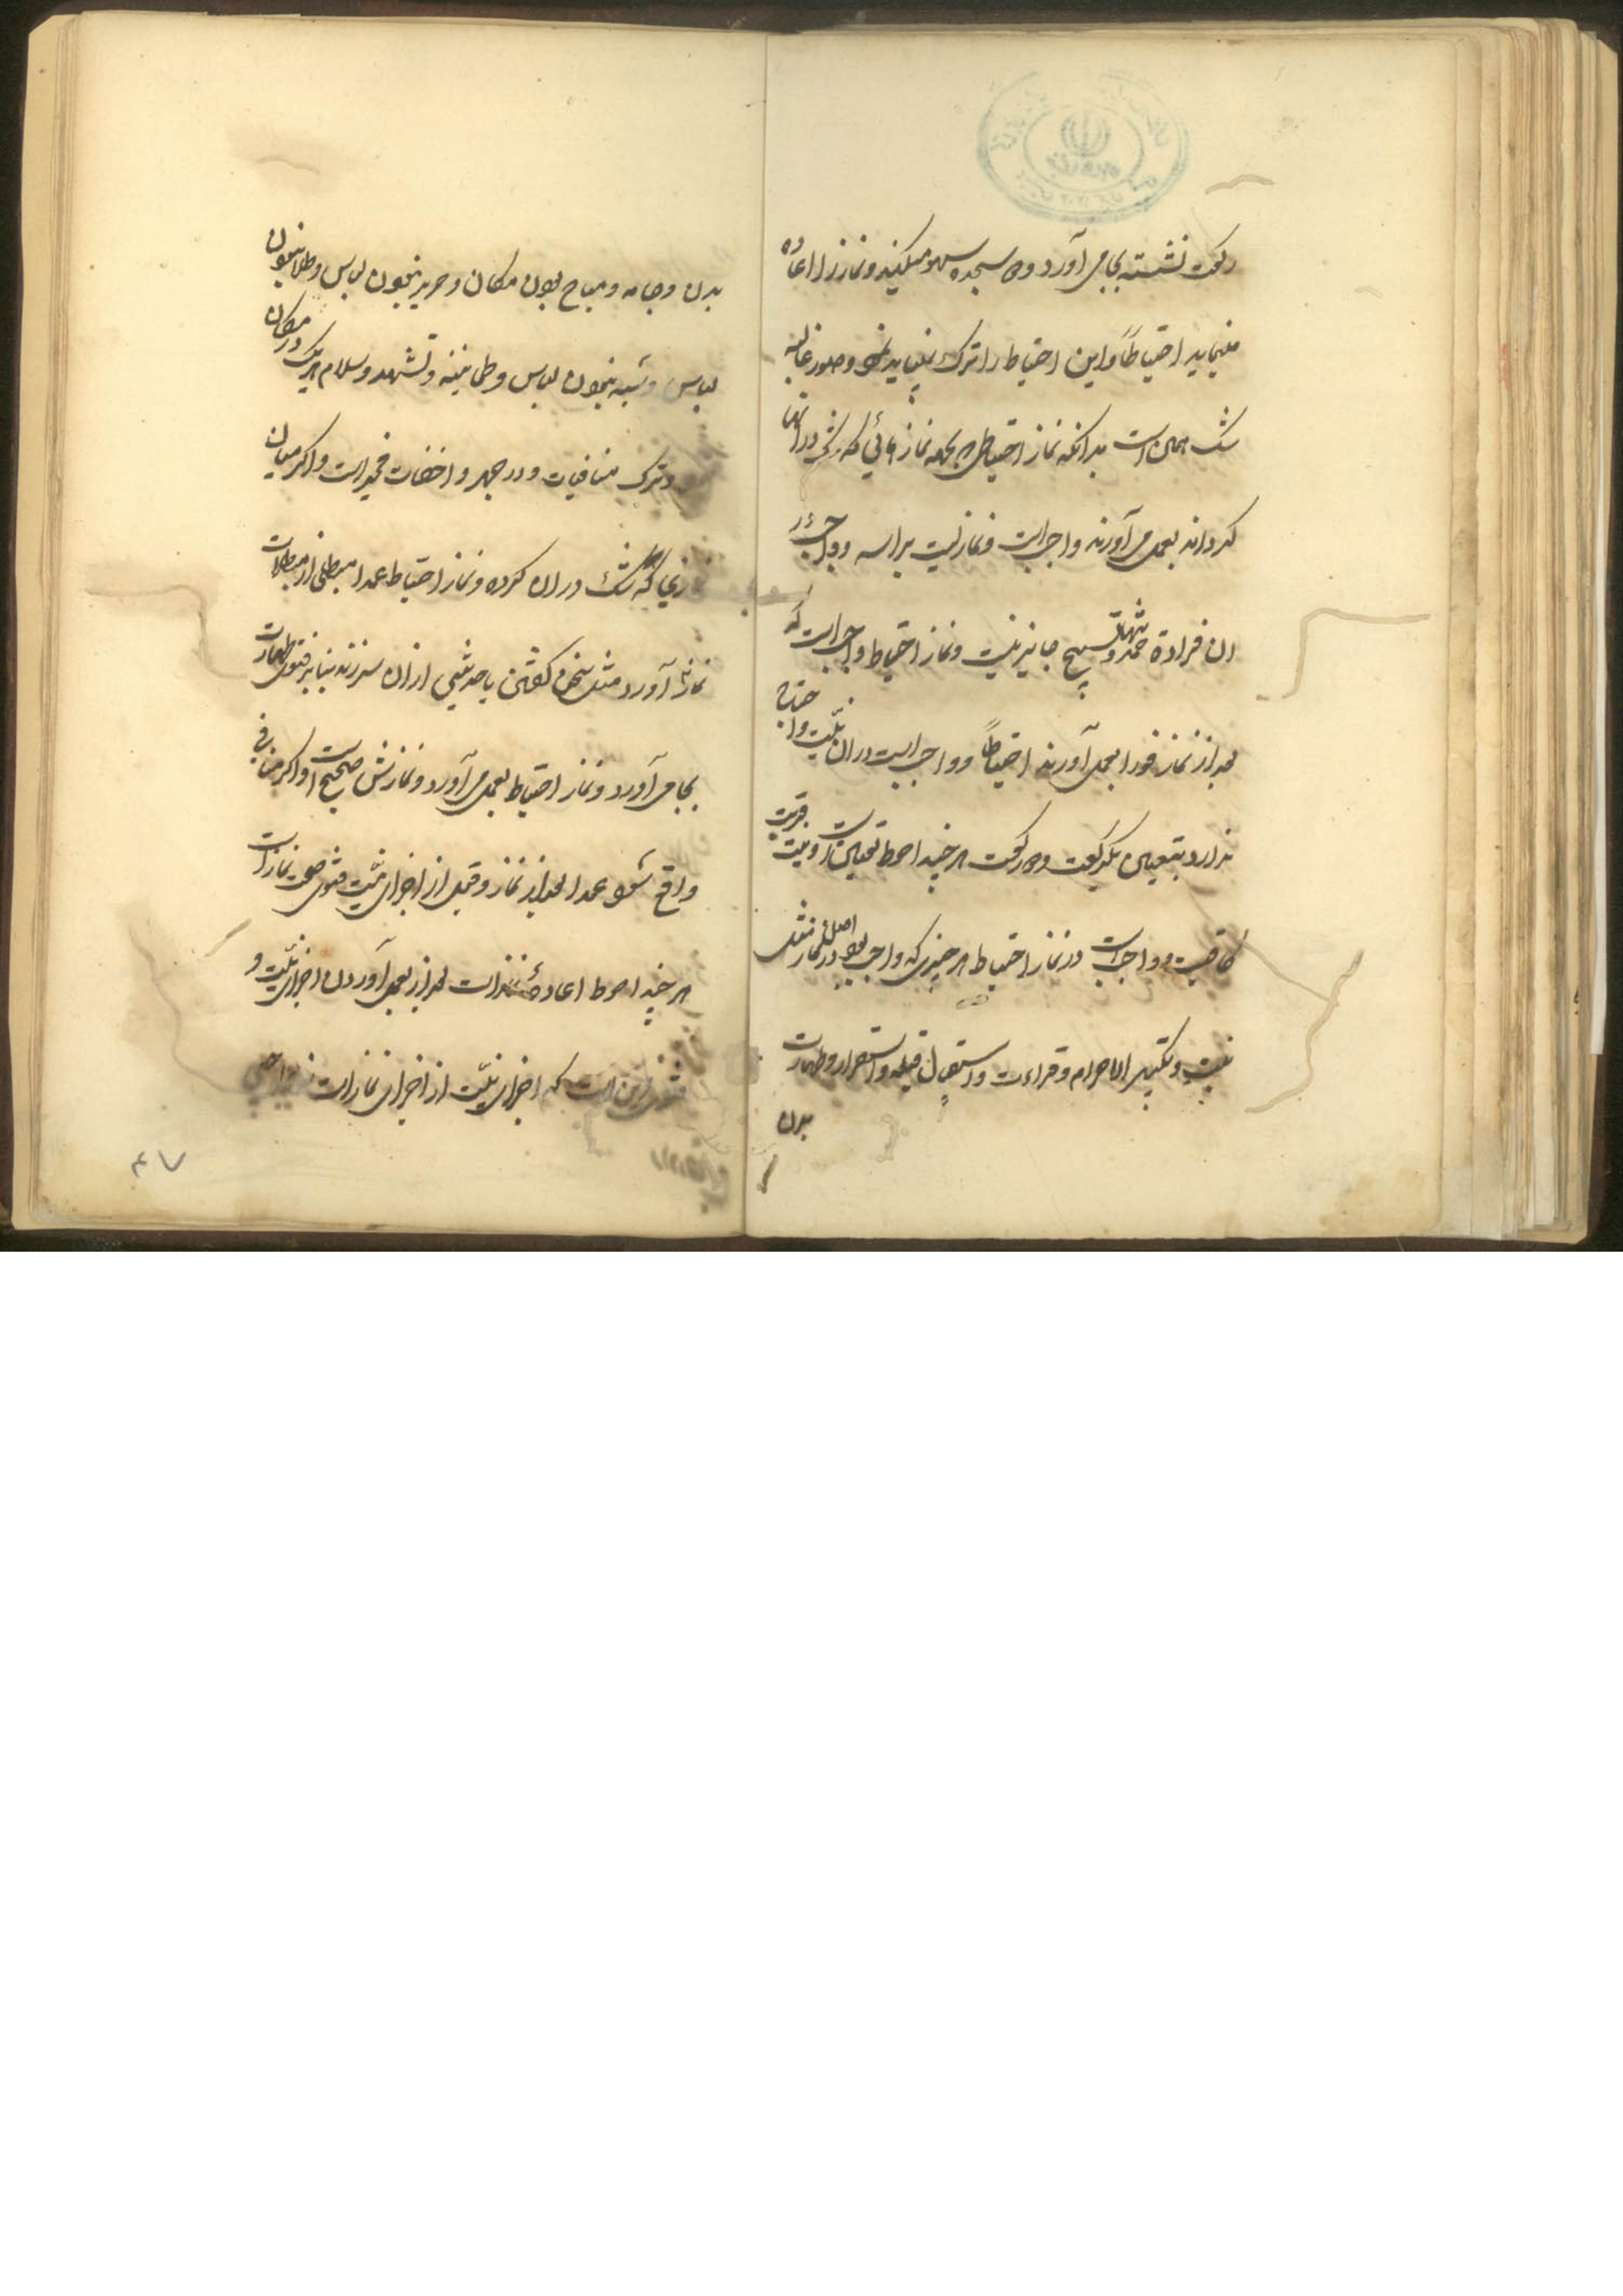 رکعت نشسته بجا می آورد و دو سجده سهو میکند و نماز را اعاده
مینماید احتیاطاً و این احتیاط را ترک ننماید و صور غالبه
شک همین است بدانکه نماز احتیاطی که بجهه نماز هائی که شک در آنها
کرده اند بعمل می آورند واجب است و نماز نیست براسه و واجب
ان فرادة حمد و تسبیح جایز نیست و نماز احتیاط واجب است که
بعد از نماز فورا بعمل آورند احتیاطاً و واجب است در ان نیّت و احتیاج
ندارد بتعیین یکرکعت و دو رکعت هر چند احوط تعیین است و نیت قربت
کافیست و واجب است در نماز احتیاط هر چیزی که واجب بود در اصل نماز مثل
نیت و تکبیر الاحرام و قراءت و استقبال قبله و استقرار و طهارت
بدن
بدن و جامه و مباح بودن مکان و حریر نبودن لباس و طلا نبودن
لباس و شبه نبودن لباس و طمانینه و تشهد و سلام هر یک در مکان
و ترک منافیات و در جهر و اخفات مخیر است و اگر میان
نمازی که شک در ان کرده و نماز احتیاط عمدا مبطلی از مبطلات
نماز آورد مثل سخن گفتن یا حدثی از ان سر زند بنا بر فتوی طهارت
بجا می آورد و نماز احتیاط بعمل می آورد و نمازش صحیح است و اگر منافی
واقع شود عمدا بعد از نماز و قبل از اجزای فتوی صحت نماز است
هر چند احوط اعاده نماز است بعد از بعمل آوردن اجزای و
فتوی این است که اجزای از اجزای نماز است
۴۷